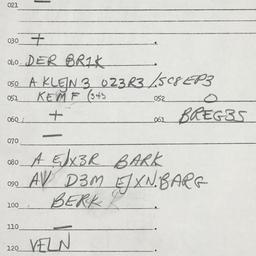 021 —
030 +
040 DER BR1K
050 A KLEJN3 OZ3R3 /SC8 EP3
051 KEMF (343 052 O
060 + 061 BREG3S
—
070
080 A E/X3R BARK
090 AV D3M E/XN.BARG
100 BERK
110 —
120 VELN